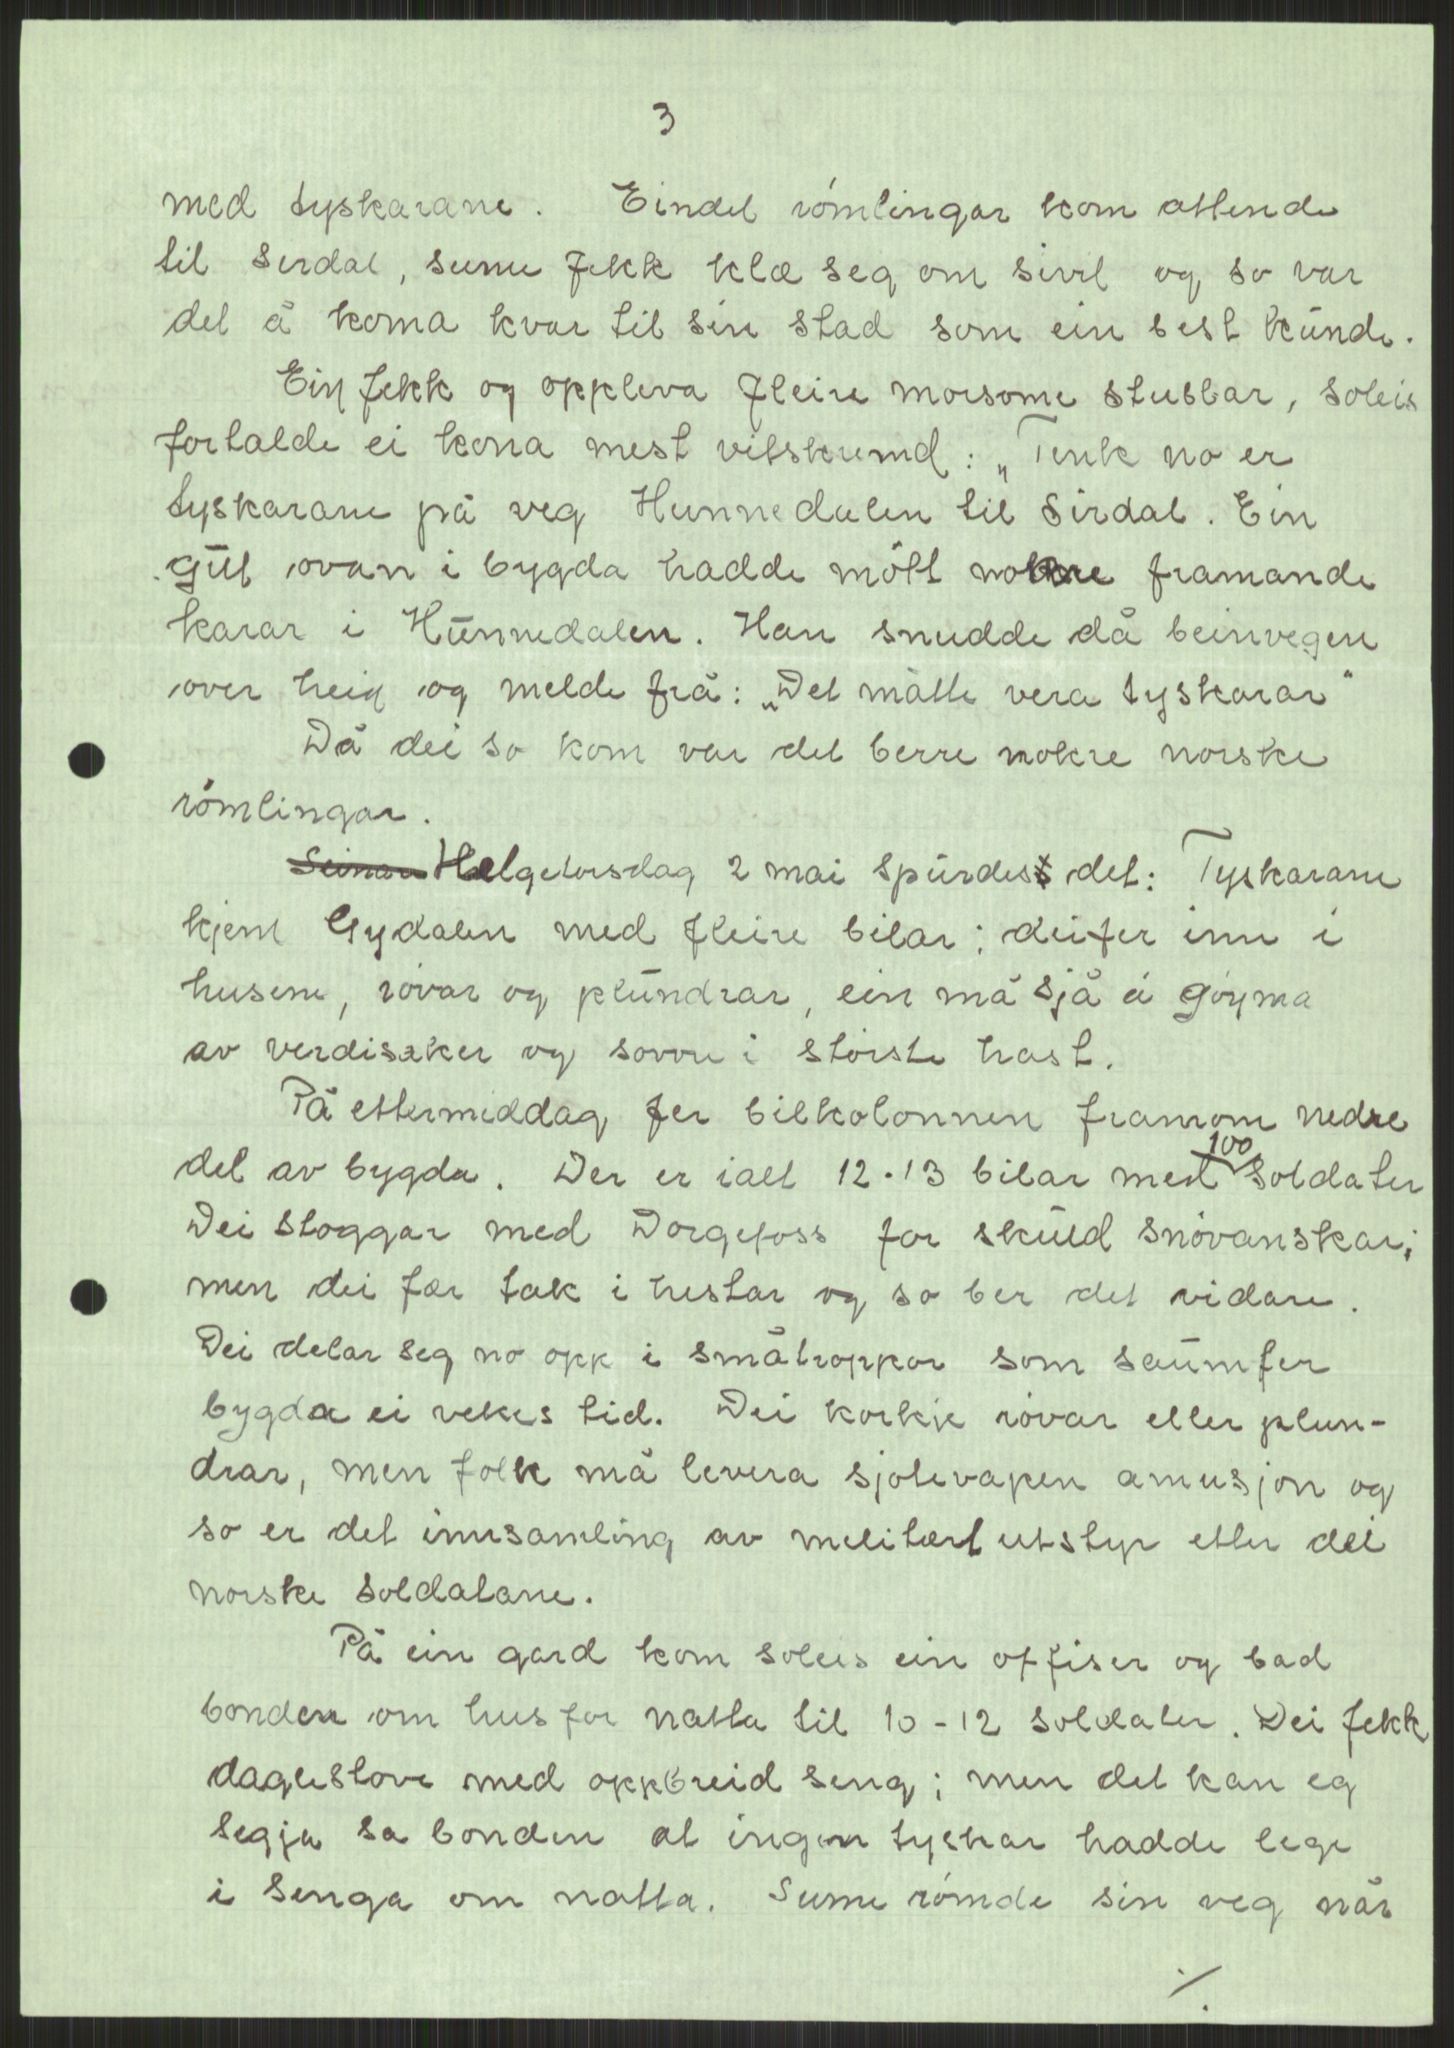 3
med tyskarane. Eindel römlingar kom attende
til Serdal, sume fekk klæ seg om sivil og so var
det å koma kvar til sin stad som ein best kunde.
Ein fekk og oppleva fleire morsome stubbar, soleis
fortalde ei kona mest vitskremd: „Tenk no er
tyskarane på veg Hunnedalen til Sirdal. Ein
gut ovan i bygda hadde mött nokre framande
karar i Hunnedalen. Han snudde då beinvegen
over heia og melde frå: „Det måtte vera tyskarar"
Då dei so kom var det berre nokre norske
römlingar.
Helgetorsdag 2 mai spurdest det: Tyskarane
kjem Gydalen med fleire bilar; dei fer inn i
husene, rövar og plundrar, ein må sjå å göyma
av verdisaker og sovore i störste hast.
På ettermiddag fer bilkolonnen framom nedre
del av bygda. Der er ialt 12-13 bilar med 100 soldater
Dei stoggar med Dorgefoss for skuld snövanskar;
men dei fær tak i hestar og so ber det vidare.
Dei delar seg no opp i småtroppar som saumfer
bygda ei vekes tid. Dei korkje rövar eller plun-
drar, men folk må levera sjotevapen amusjon og
so er det innsamling av melitært utstyr etter dei
norske soldatane.
På ein gard kom soleis ein offiser og bad
bonden om hus for natta til 10-12 soldater. Dei fekk
daglestove med oppbreid seng; men det kan eg
segja sa bonden at ingen tyskar hadde lege
i senga om natta. Sume römde sin veg når
./.